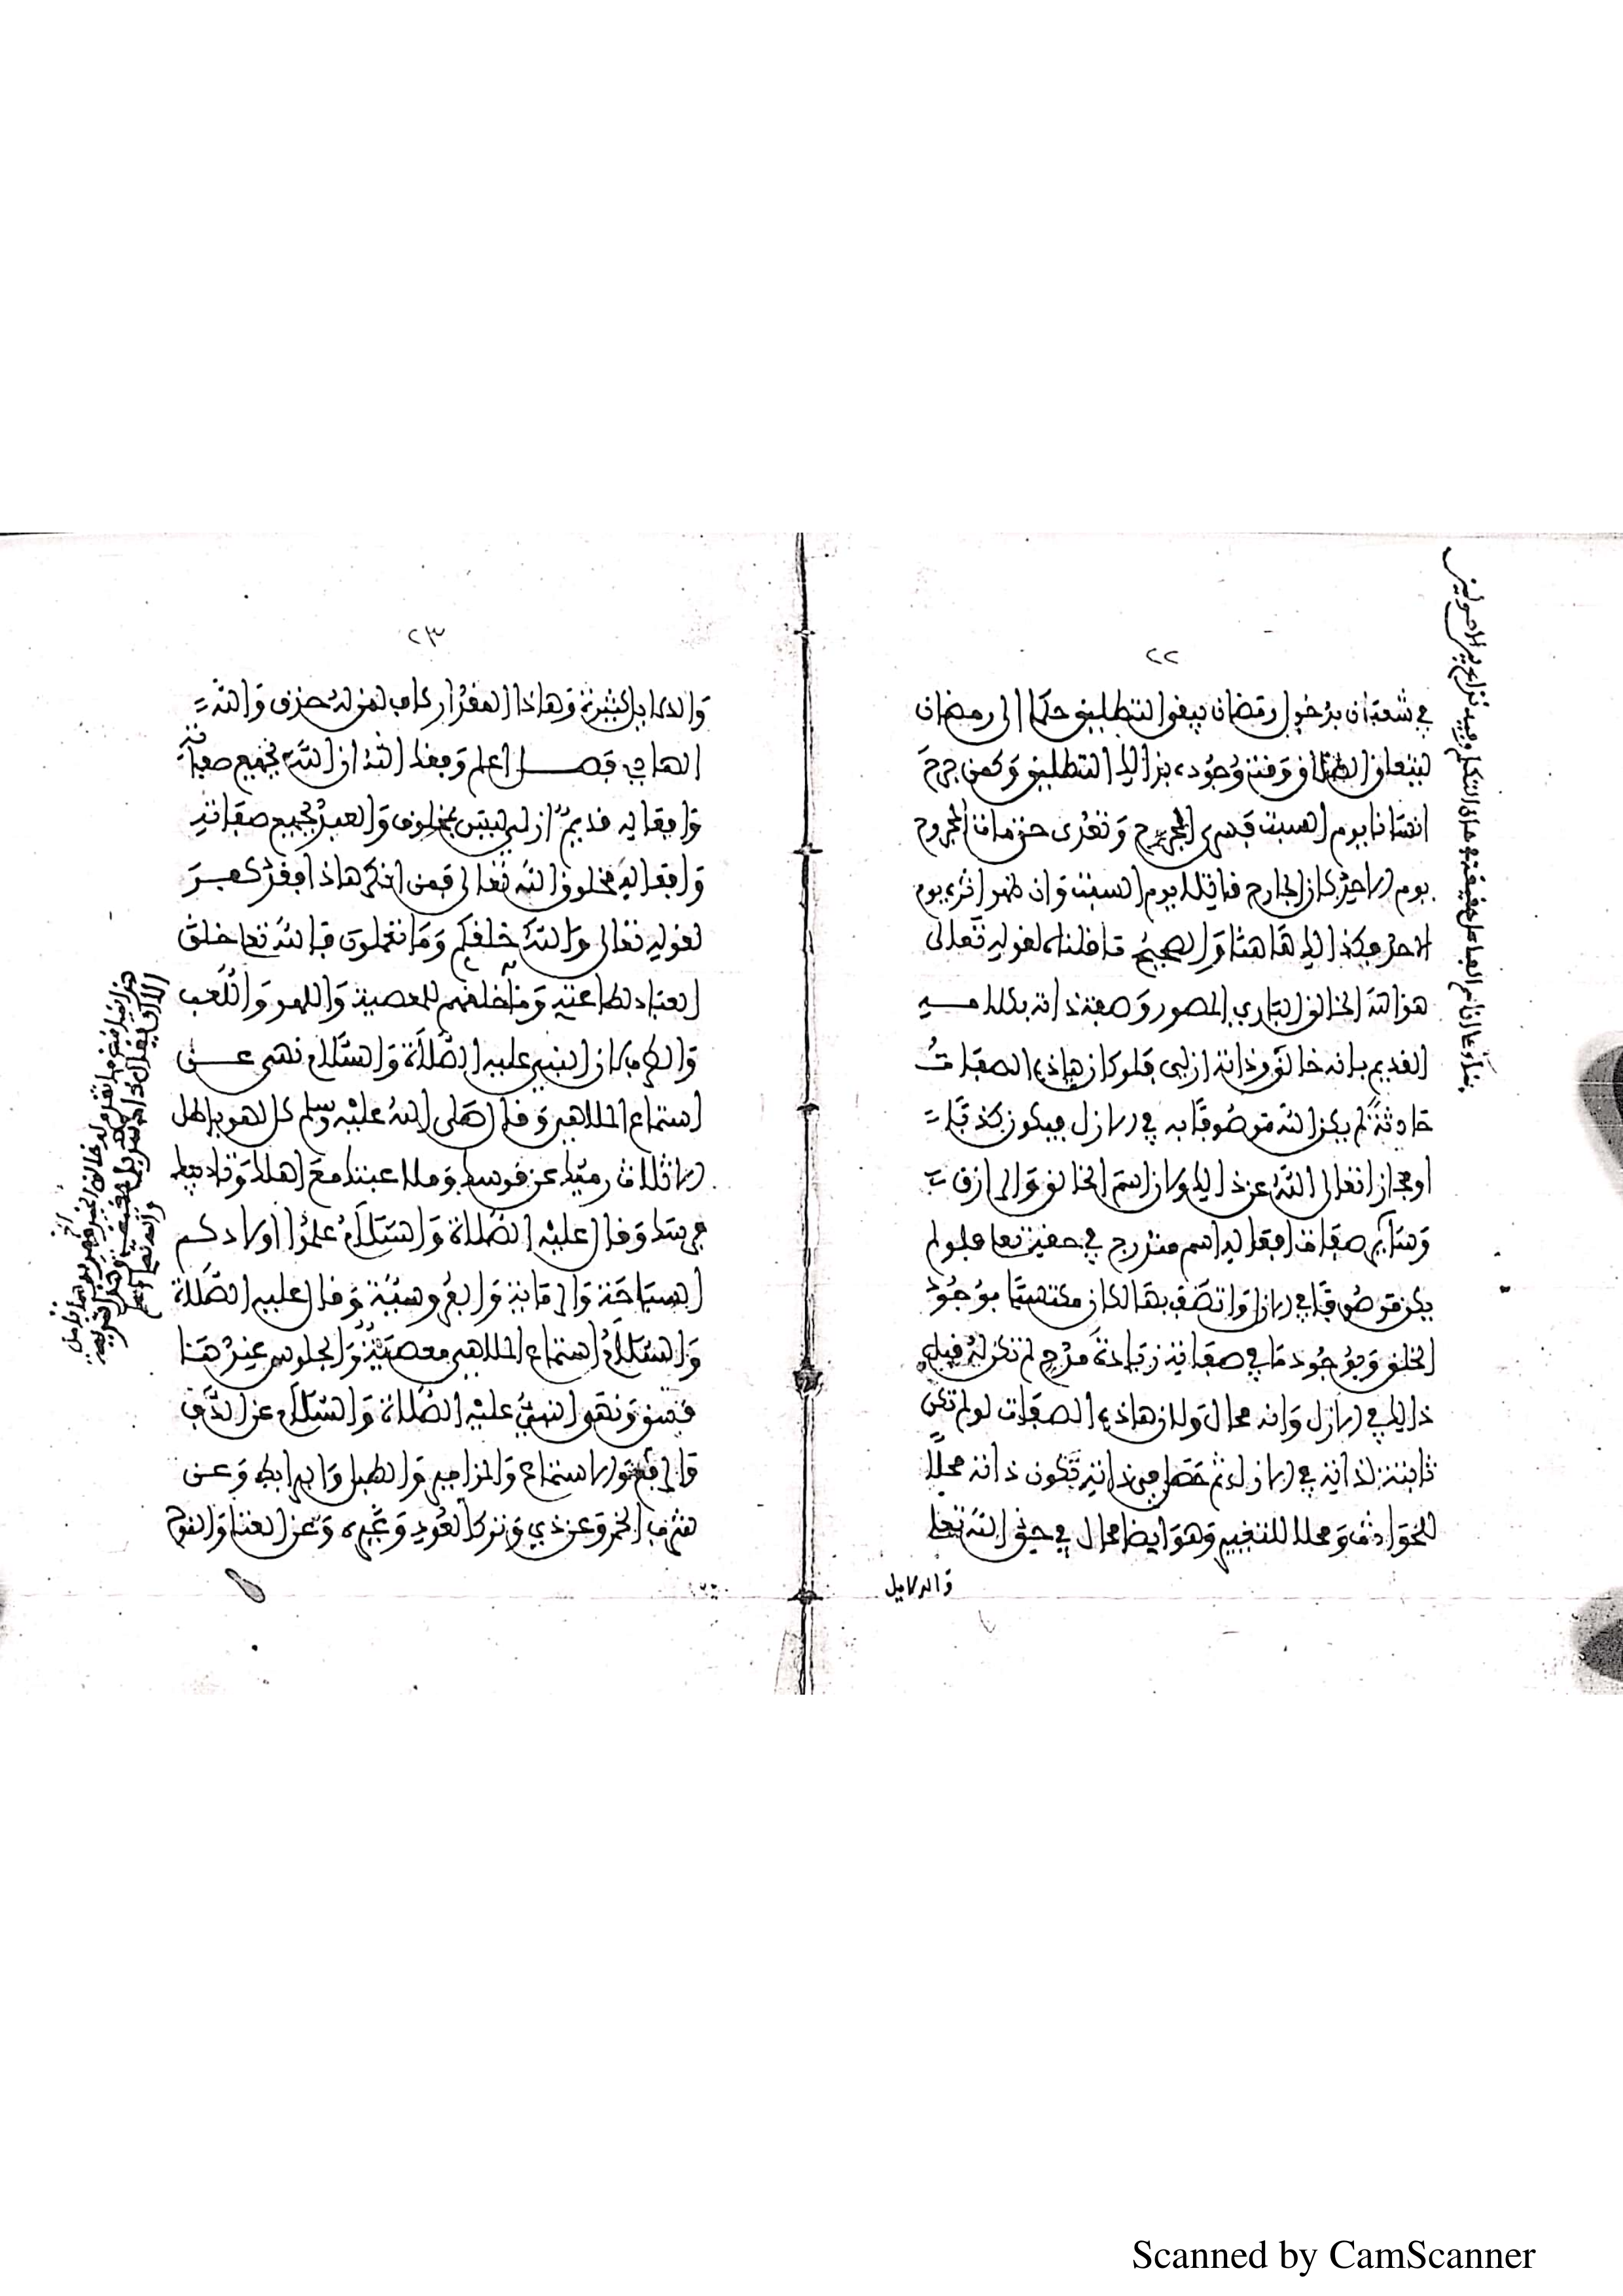 ٢٢
في شعبان بدخول رمضان يبقى التطليق حكما الى رمضان
ليتعلق الطلاق وقت وجوده بذالك التطليق وكمن جرح
انسانا يوم السبت فسرى الجرح وتعدى حتى مات المجروح
يوم الاحد كان الجارح قاتلا يوم السبت وان ظهر اثره يوم
الاحد فكذالك هاهنا والصحيح ما قلناه لقوله تعالى
هو الله الخالق الباري المصور وصف ذاته بكلامه
القديم بانه خالق وذاته ازلي فلو كان هاذه الصفات
حادثة لم يكن الله موصوفا به في الازل فيكون كذبا
او مجازا تعالى الله عن ذالك ولان اسم الخالق والرازق
وسائر صفات افعاله اسم مدح في حقه تعا فلو لم
يكن موصوفا في الازل واتصف بها لكان مكتسبا بوجود
الخلق وبوجود ما في صفاته زيادة مدح لم تكن له قبل
ذالك في الازل وانه محال ولان هاذه الصفات لو لم تكن
ثابتة لذاته في الازل ثم حصل في ذاته تكون ذاته محلا
للحوادث ومحلا للتغيير وهو ايضا محال في حق الله تعا
والدلايل
٢٣
والدلايل كثيرة وهاذا المقدار كاف لمن له حذق والله
الهادي فصل اعلم وفقك الله ان الله بجميع صفاته
وافعاله قديم ازلي ليس بمخلوق والعبد بجميع صفاته
وافعاله مخلوق الله تعالى فمن انكر هاذا فقد كفر
لقوله تعالى والله خلقكم وما تعملون فالله تعا خلق
العباد لطاعته وما خلقهم للمعصية واللهو واللعب
والطرب لان النبي عليه الصلاة والسلام نهى عن
استماع الملاهي وقال صلى الله عليه وسلم كل لهو باطل
الا ثلاث رميك عن قوسك وملاعبتك مع اهلك وتاديبك
فرسك وقال عليه الصلاة والسلام علموا اولادكم
السباحة والرماية والفروسية وقال عليه الصلاة
والسلام استماع الملاهي معصية والجلوس عندها
فسق ونهى النبي عليه الصلاة والسلام عن الدف
والرقص والاستماع والمزامير والطبل والبرابط وعن
شرب الخمر وعن ذي وترك العود وغيره وعن الغنا والنوح